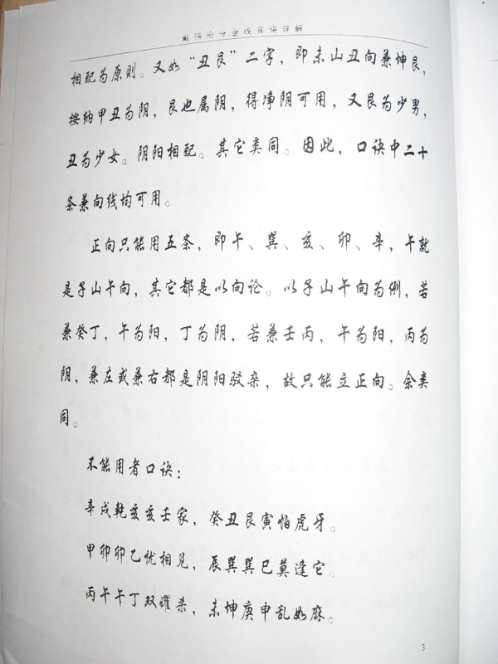 相配为原则。又如“丑艮”二字，即未山丑向兼坤艮，
按纳甲丑为阴，艮也属阴，得净阴可用，又艮为少男，
丑为少女。阴阳相配。其它类同。因此，口诀中二十
条兼向线均可用。
正向只能用五条，即午、巽、亥、卯、辛，午就
是子山午向，其它都是以向论。以子山午向为例，若
兼癸丁，午为阳，丁为阴，若兼壬丙，午为阳，丙为
阴，兼左或兼右都是阴阳驳杂，故只能立正向。余类
同。
不能用者口诀：
辛戌乾亥亥壬家，癸丑艮寅怕虎牙。
甲卯卯乙忧相见，辰巽巽巳莫逢它。
丙午午丁双谨杀，未坤庚申乱如麻。
3